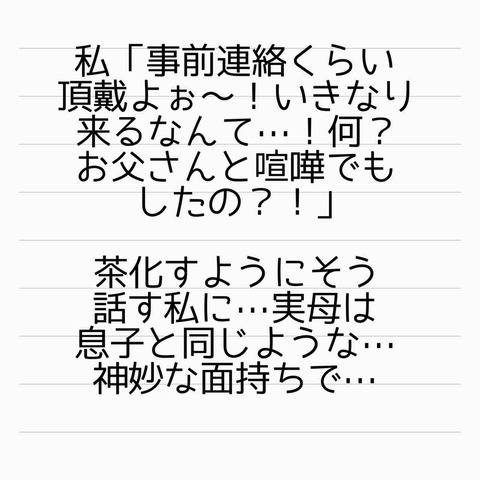 私「事前連絡くらい
頂戴よぉ〜！いきなり
来るなんて…！何？
お父さんと喧嘩でも
したの？！」
茶化すようにそう
話す私に…実母は
息子と同じような…
神妙な面持ちで…